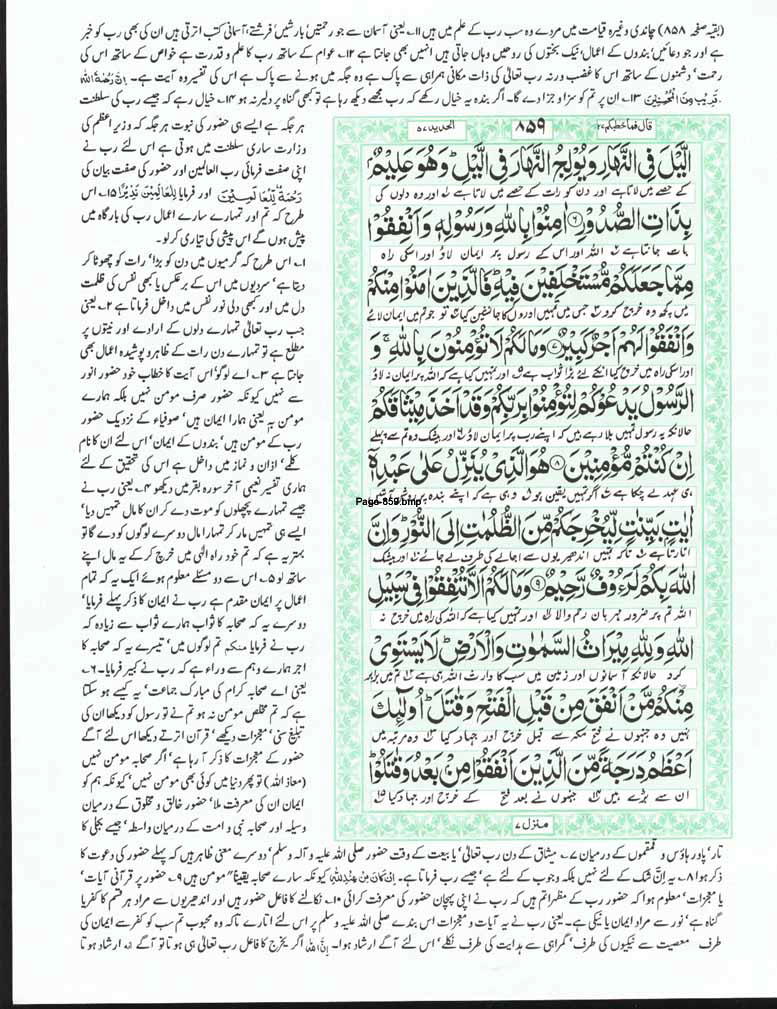 (بقیہ صفحہ ۸۵۸) چاندی وغیرہ قیامت میں مردے وہ سب رب کے علم میں ہیں ۱۱؎ یعنی آسمان سے جو رحمتیں بارشیں' فرشتے، آسمانی کتب اترتی ہیں ان کی بھی رب کو خبر
ہے اور جو دعائیں' بندوں کے اعمال' نیک بختوں کی روحیں وہاں جاتی ہیں انہیں بھی جانتا ہے ۱۲؎ عوام کے ساتھ رب کا علم و قدرت ہے خواص کے ساتھ اس کی
رحمت' دشمنوں کے ساتھ اس کا غضب ورنہ رب تعالٰی کی ذات مکانی ہمراہی سے پاک ہے وہ جگہ میں ہونے سے پاک ہے اس کی تفسیر وہ آیت ہے۔ اِنَّ رَحْمَةَ اللّٰهِ
قَرِیْبٌ مِّنَ الْمُحْسِنِیْنَ ۱۳؎ ان پر تم کو سزا و جزا دے گا۔ اگر بندہ یہ خیال رکھے کہ رب مجھے دیکھ رہا ہے تو کبھی گناہ پر دلیر نہ ہو ۱۴؎ خیال رہے کہ جیسے رب کی سلطنت
ہر جگہ ہے ایسے ہی حضور کی نبوت ہر جگہ کہ وزیر اعظم کی
وزارت ساری سلطنت میں ہوتی ہے اس لئے رب نے
اپنی صفت فرمائی رب العالمین اور حضور کی صفت بیان کی
رَحْمَةً لِّلْعٰلَمِیْنَ اور فرمایا لِلْعَالَمِیْنَ نَذِیْرًا ۱۵؎ اس
طرح کہ تم اور تمہارے سارے اعمال رب کی بارگاہ میں
پیش ہوں گے اس پیشی کی تیاری کر لو۔
۱؎ اس طرح کہ گرمیوں میں دن کو بڑا' رات کو چھوٹا کر
دیتا ہے' سردیوں میں اس کے برعکس یا کبھی نفس کی ظلمت
دل میں اور کبھی دلی نور نفس میں داخل فرماتا ہے ۲؎ یعنی
جب رب تعالٰی تمہارے دلوں کے ارادے اور نیتوں پر
مطلع ہے تو تمہارے دن رات کے ظاہر و پوشیدہ اعمال بھی
جانتا ہے ۳؎ اے لوگو' اس آیت کا خطاب خود حضور انور
سے نہیں کیونکہ حضور صرف مومن نہیں بلکہ ہمارے
مومن بہ یعنی ہمارا ایمان ہیں' صوفیاء کے نزدیک حضور
رب کے مومن ہیں' بندوں کے ایمان' اس لئے ان کا نام
کلمے' اذان و نماز میں داخل ہے اس کی تحقیق کے لئے
ہماری تفسیر نعیمی آخر سورہ بقر میں دیکھو ۴؎ یعنی رب نے
جیسے تمہارے پچھلوں کو موت دے کر ان کا مال تمہیں دیا'
ایسے ہی تمہیں مار کر تمہارا مال دوسرے لوگوں کو دے گا تو
بہتر یہ ہے کہ تم خود راہ الٰہی میں خرچ کر کے یہ مال اپنے
ساتھ لو ۵؎ اس سے دو مسئلے معلوم ہوئے ایک یہ کہ تمام
اعمال پر ایمان مقدم ہے رب نے ایمان کا ذکر پہلے فرمایا'
دوسرے یہ کہ صحابہ کا ثواب ہمارے ثواب سے زیادہ کہ
رب نے فرمایا منکم تم لوگوں میں' تیسرے یہ کہ صحابہ کا
اجر ہمارے وہم سے وراء ہے کہ رب نے کبیر فرمایا۔ ۶؎
یعنی اے صحابہ کرام کی مبارک جماعت' یہ کیسے ہو سکتا
ہے کہ تم مخلص مومن نہ ہو تم نے تو رسول کو دیکھا ان کی
تبلیغ سنی' معجزات دیکھے' قرآن اترتے دیکھا اس لئے آگے
حضور کے معجزات کا ذکر آ رہا ہے' اگر صحابہ مومن نہیں
(معاذ اللہ) تو پھر دنیا میں کوئی بھی مومن نہیں' کیونکہ ہم کو
ایمان ان کی معرفت ملا' حضور خالق و مخلوق کے درمیان
وسیلہ اور صحابہ نبی و امت کے درمیان واسطہ' جیسے بجلی کا
قال فما خطبکم ۲۷
۸۵۹
الحدید ۵۷
الَّیْلَ فِی النَّهَارِ وَیُوْلِجُ النَّهَارَ فِی الَّیْلِ ؕ وَهُوَ عَلِیْمٌۢ
کے حصے میں لاتا ہے اور دن کو رات کے حصے میں لاتا ہے ۱؎ اور وہ دلوں کی
بِذَاتِ الصُّدُوْرِ ۝۶ اٰمِنُوْا بِاللّٰهِ وَرَسُوْلِهٖ وَاَنْفِقُوْا
بات جانتا ہے ۲؎ اللہ اور اس کے رسول پر ایمان لاؤ ۳؎ اور اسکی راہ
مِمَّا جَعَلَكُمْ مُّسْتَخْلَفِیْنَ فِیْهِ ؕ فَالَّذِیْنَ اٰمَنُوْا مِنْكُمْ
میں کچھ وہ خرچ کرو جس میں تمہیں اوروں کا جانشین کیا ۴؎ تو جو تم میں ایمان لائے
وَاَنْفَقُوْا لَهُمْ اَجْرٌ كَبِیْرٌ ۝۷ وَمَا لَكُمْ لَا تُؤْمِنُوْنَ بِاللّٰهِ ۚ وَ
اور اسکی راہ میں خرچ کیا انکے لئے بڑا ثواب ہے ۵؎ اور تمہیں کیا ہے کہ اللہ پر ایمان نہ لاؤ
الرَّسُوْلُ یَدْعُوْكُمْ لِتُؤْمِنُوْا بِرَبِّكُمْ وَقَدْ اَخَذَ مِیْثَاقَكُمْ
حالانکہ یہ رسول تمہیں بلا رہے ہیں کہ اپنے رب پر ایمان لاؤ ۶؎ اور بیشک وہ تم سے پہلے
اِنْ كُنْتُمْ مُّؤْمِنِیْنَ ۝۸ هُوَ الَّذِیْ یُنَزِّلُ عَلٰی عَبْدِهٖۤ
ہی عہد لے چکا ہے ۷؎ اگر تمہیں یقین ہو ۸؎ وہی ہے کہ اپنے بندہ پر روشن آیتیں
Page-859.bmp
اٰیٰتٍۭ بَیِّنٰتٍ لِّیُخْرِجَكُمْ مِّنَ الظُّلُمٰتِ اِلَی النُّوْرِ ؕ وَاِنَّ
اتارتا ہے ۹؎ تاکہ تمہیں اندھیریوں سے اجالے کی طرف لے جائے ۱۰؎ اور بیشک
اللّٰهَ بِكُمْ لَرَءُوْفٌ رَّحِیْمٌ ۝۹ وَمَا لَكُمْ اَلَّا تُنْفِقُوْا فِیْ سَبِیْلِ
اللہ تم پر ضرور مہربان رحم والا ۱۱؎ اور تمہیں کیا ہے کہ اللہ کی راہ میں خرچ نہ
اللّٰهِ وَلِلّٰهِ مِیْرَاثُ السَّمٰوٰتِ وَالْاَرْضِ ؕ لَا یَسْتَوِیْ
کرو حالانکہ آسمانوں اور زمین میں سب کا وارث اللہ ہی ہے تم میں برابر
مِنْكُمْ مَّنْ اَنْفَقَ مِنْ قَبْلِ الْفَتْحِ وَقٰتَلَ ؕ اُولٰٓئِكَ
نہیں وہ جنہوں نے فتح مکہ سے قبل خرچ اور جہاد کیا وہ مرتبہ میں
اَعْظَمُ دَرَجَةً مِّنَ الَّذِیْنَ اَنْفَقُوْا مِنْۢ بَعْدُ وَقٰتَلُوْا ؕ
ان سے بڑے ہیں جنہوں نے بعد فتح کے خرچ اور جہاد کیا
منزل ۷
تار' پاور ہاؤس و قمقموں کے درمیان ۷؎ میثاق کے دن رب تعالٰی' یا بیعت کے وقت حضور صلی اللہ علیہ و آلہ وسلم' دوسرے معنی ظاہر ہیں کہ پہلے حضور کی دعوت کا
ذکر ہوا ۸؎ یہ اِنْ شک کے لئے نہیں بلکہ وجوب کے لئے ہے' جیسے رب فرماتا ہے۔ کیونکہ سارے صحابہ یقیناً' مومن ہیں ۹؎ حضور پر قرآنی آیات'
یا معجزات' معلوم ہوا کہ حضور رب کے مظہر اتم ہیں کہ رب نے اپنی پہچان حضور کی معرفت کرائی ۱۰؎ نکالنے کا فاعل حضور ہیں اور اندھیریوں سے مراد ہر قسم کا کفر یا
گناہ ہے' نور سے مراد ایمان یا نیکی ہے۔ یعنی رب نے یہ آیات و معجزات اس بندے صلی اللہ علیہ وسلم پر اس لئے اتارے تاکہ وہ محبوب تم سب کو کفر سے ایمان کی
طرف' معصیت سے نیکیوں کی طرف' گمراہی سے ہدایت کی طرف نکلے' اس لئے آگے ارشاد ہوا۔ اِنَّ اللّٰہَ اگر یخرج کا فاعل رب تعالٰی ہی ہوتا تو آگے انہ ارشاد ہوتا